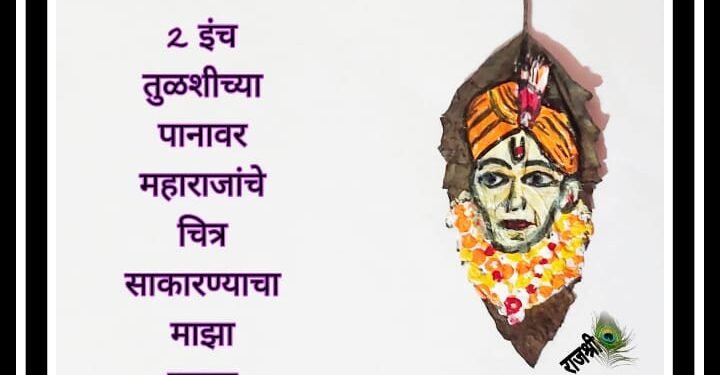 2 इंच
तुळशीच्या
पानावर
महाराजांचे
चित्र
साकारण्याचा
माझा
राजश्री